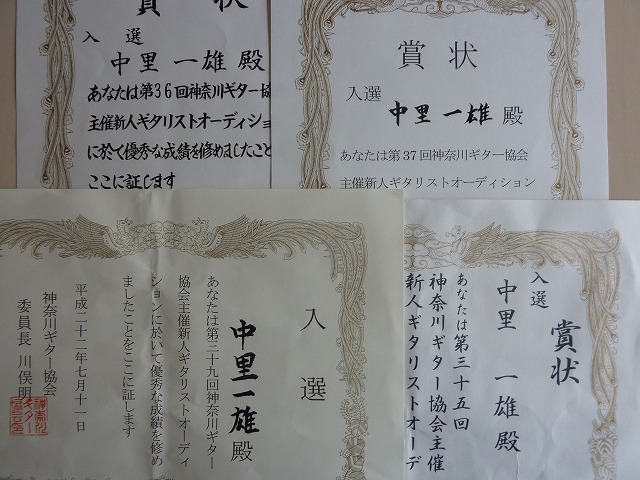 賞状
入選
中里一雄殿
あなたは第36回神奈川ギター協
主催新人ギタリストオーディショ
に於て優秀な成績を修めましたこと
ここに証します
賞状
入選
中里一雄殿
あなたは第37回神奈川ギター協会
主催新人ギタリストオーディション
入選
中里一雄殿
あなたは第三十九回神奈川ギター
協会主催新人ギタリストオーディ
ションに於いて優秀な成績を修め
ましたことをここに証します
平成二十二年七月十一日
神奈川ギター協会
委員長 川俣明
賞状
入選
中里一雄殿
あなたは第三十五回
神奈川ギター協会主催
新人ギタリストオーデ